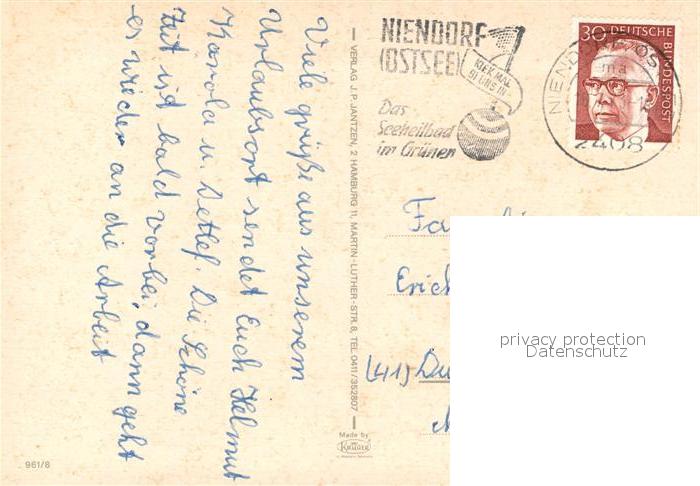 Viele grüße aus unserem
Urlaubsort sendet Euch Helmut
Karola u. Detlef. Die Schöne
Zeit ist bald vorbei, dann geht
es wieder an die Arbeit
VERLAG J. P. JANTZEN, 2 HAMBURG 11, MARTIN-LUTHER-STR. 8, TEL. 0411/352807
Made by
Krüger
961/8
NIENDORF
(OSTSEE)
KIEK MAL
BI UNS IN
Das
Seeheilbad
im Grünen
30 DEUTSCHE
BUNDESPOST
NIENDORF, OST
ma
2408
Fa
Erich
(41) Du
privacy protection
Datenschutz